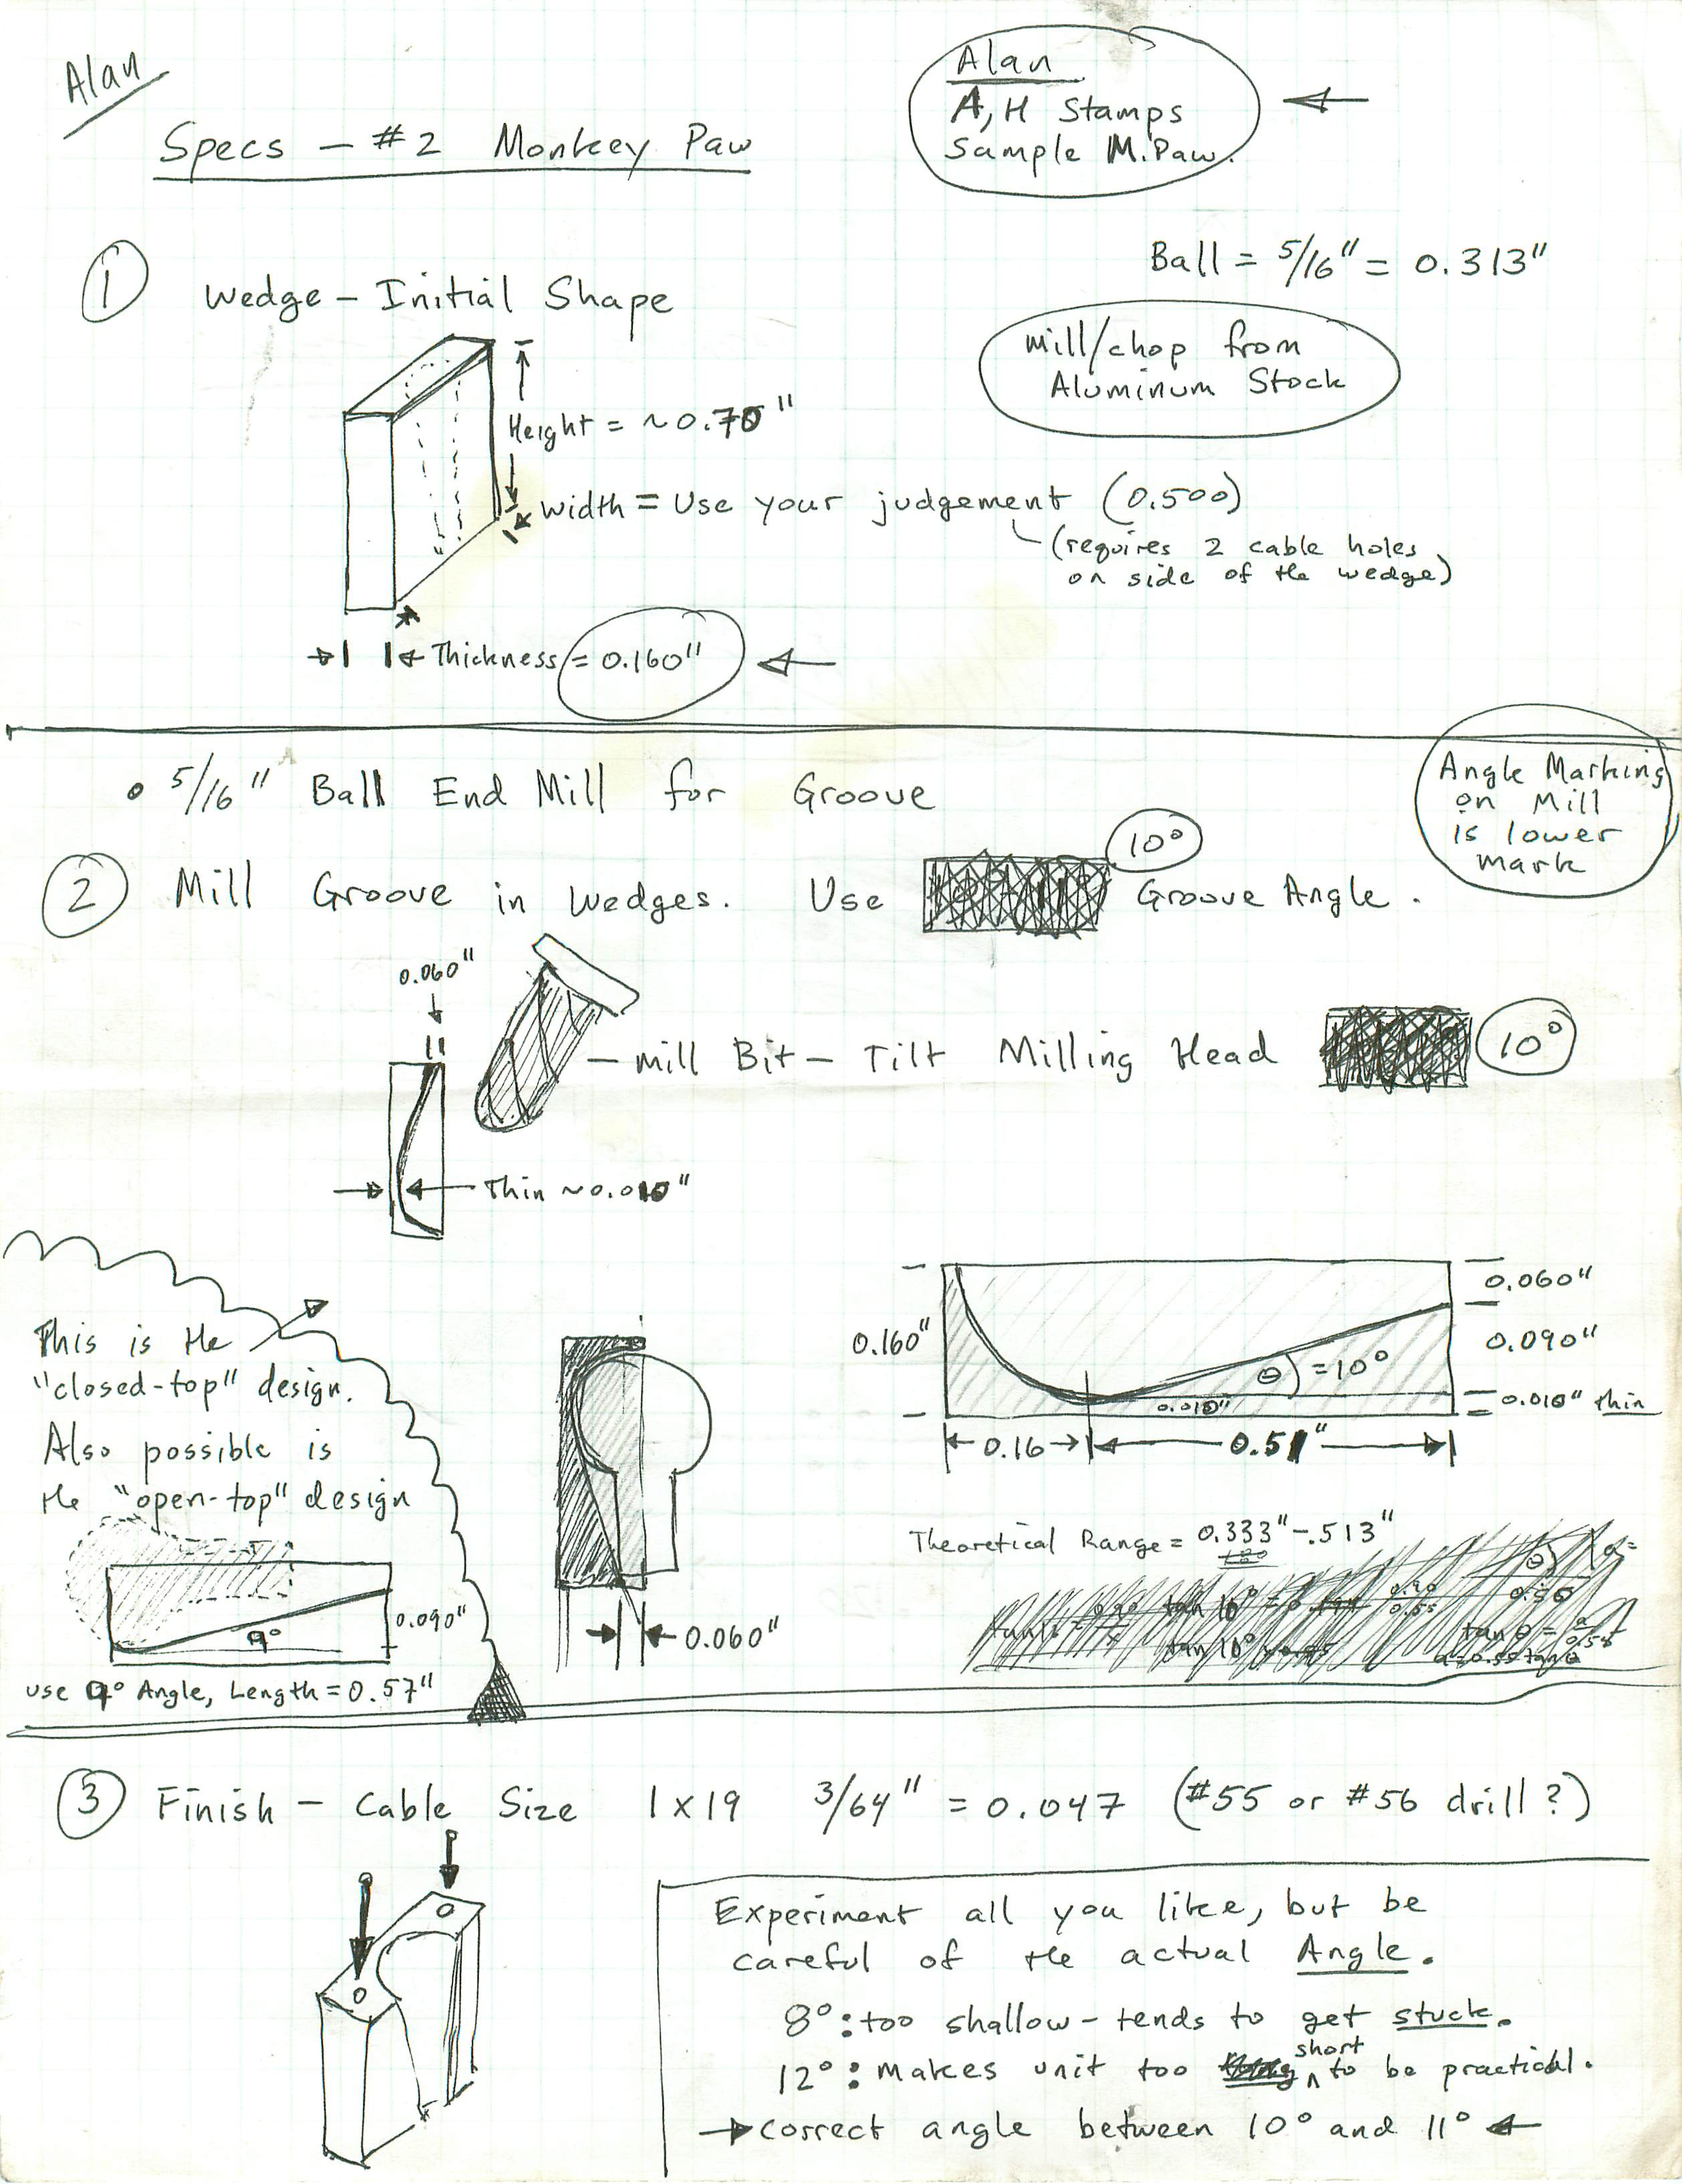 Alan
Specs – #2 Monkey Paw
Alan
A, H Stamps
Sample M. Paw.
Ball = 5/16" = 0.313"
1 Wedge – Initial Shape
Mill/chop from
Aluminum Stock
Height = ~0.70"
Width = Use your judgement (0.500)
(requires 2 cable holes
on side of the wedge)
Thickness = 0.160"
• 5/16" Ball End Mill for Groove
Angle Marking
on Mill
is lower
mark
2 Mill Groove in Wedges. Use 10° Groove Angle.
0.060"
– Mill Bit – Tilt Milling Head 10°
Thin ~0.010"
This is the
"closed-top" design.
Also possible is
the "open-top" design
9°
0.090"
use 9° Angle, Length = 0.57"
0.060"
0.160"
θ = 10°
0.010"
0.060"
0.090"
0.010" thin
0.16
0.51"
Theoretical Range = 0.333" – .513"
3 Finish – Cable Size 1x19 3/64" = 0.047 (#55 or #56 drill?)
Experiment all you like, but be
careful of the actual Angle.
8°: too shallow – tends to get stuck.
12°: Makes unit too short to be practical.
→ correct angle between 10° and 11° ←